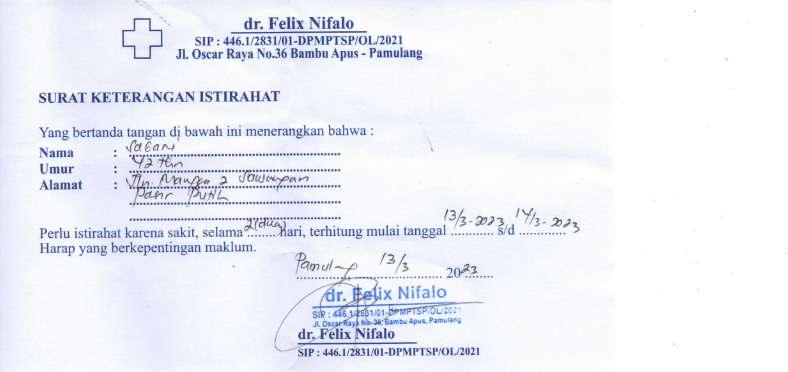 dr. Felix Nifalo
SIP : 446.1/2831/01-DPMPTSP/OL/2021
Jl. Oscar Raya No.36 Bambu Apus - Pamulang
SURAT KETERANGAN ISTIRAHAT
Yang bertanda tangan di bawah ini menerangkan bahwa :
Nama : Sabari
Umur : 42 thn
Alamat : Jln Mangga 2 Sawangan
Pasir Putih
Perlu istirahat karena sakit, selama 2 (dua) hari, terhitung mulai tanggal 13/3-2023 s/d 14/3-2023
Harap yang berkepentingan maklum.
Pamulang 13/3 2023
dr. Felix Nifalo
SIP : 446.1/2831/01-DPMPTSP/OL/2021
Jl. Oscar Raya No. 36, Bambu Apus, Pamulang
dr. Felix Nifalo
SIP : 446.1/2831/01-DPMPTSP/OL/2021